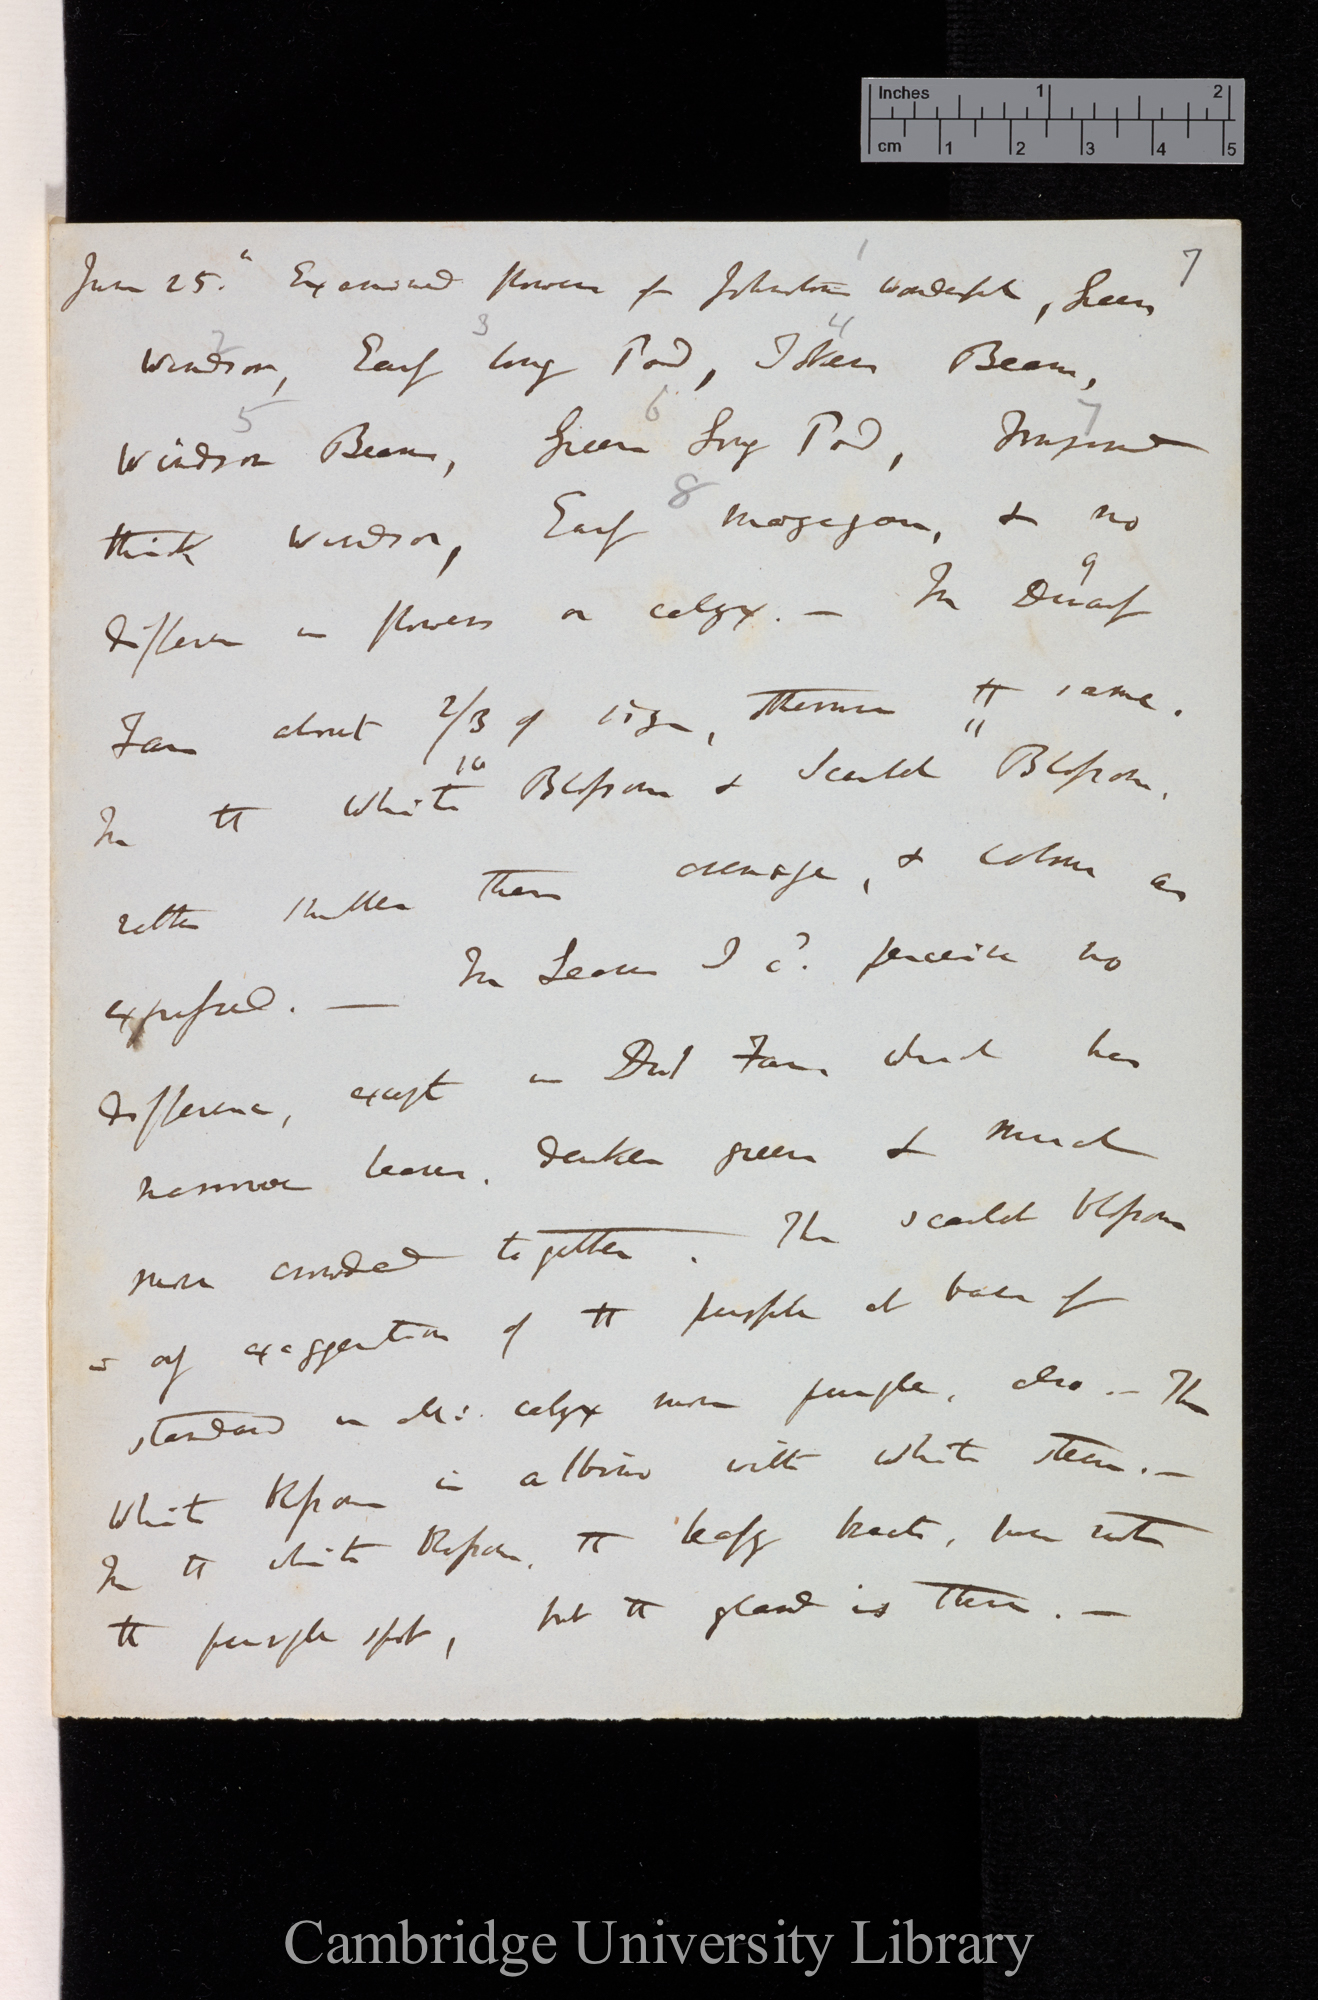 Inches 1 2
cm 1 2 3 4 5
7
June 25th Examined flowers of Johnstons 1 Wonderful, Green
2 Windsor, Early 3 Long Pod, 4 Token Bean,
5 Windsor Beans, Green 6 Long Pod, 7
thick Windsor, Early 8 Mazagan, & no
difference in flowers or calyx. — In Dwarf 9
Fan about 2/3 of size, otherwise the same.
In the White 10 Blossom & Scarlet 11 Blossom,
rather smaller than average, & colour as
expressed. — In Leaves I cd. perceive no
difference, except in Dwf Fan which has
narrower leaves, darker green & much
more crowded together. The scarlet blossom
is only exaggeration of the purple at base of
standard in others: calyx more purple, also. — The
White blossom is albino with white stem. —
In the white Blossom, the leafy bracts, have not
the purple spot, but the gland is there. —
Cambridge University Library